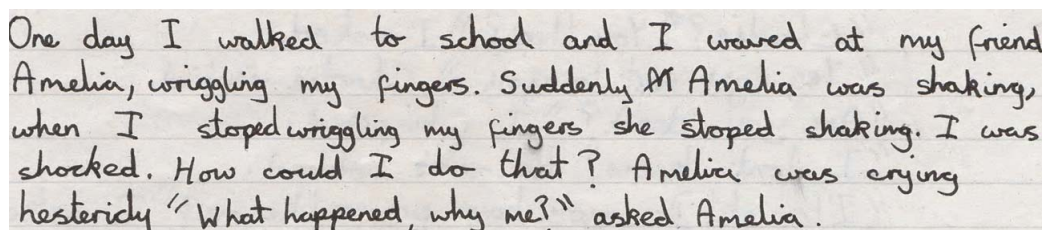 One day I walked to school and I waved at my friend
Amelia, wriggling my fingers. Suddenly Amelia was shaking,
when I stoped wriggling my fingers she stoped shaking. I was
shocked. How could I do that? Amelia was crying
hestericly "What happened, why me?" asked Amelia.